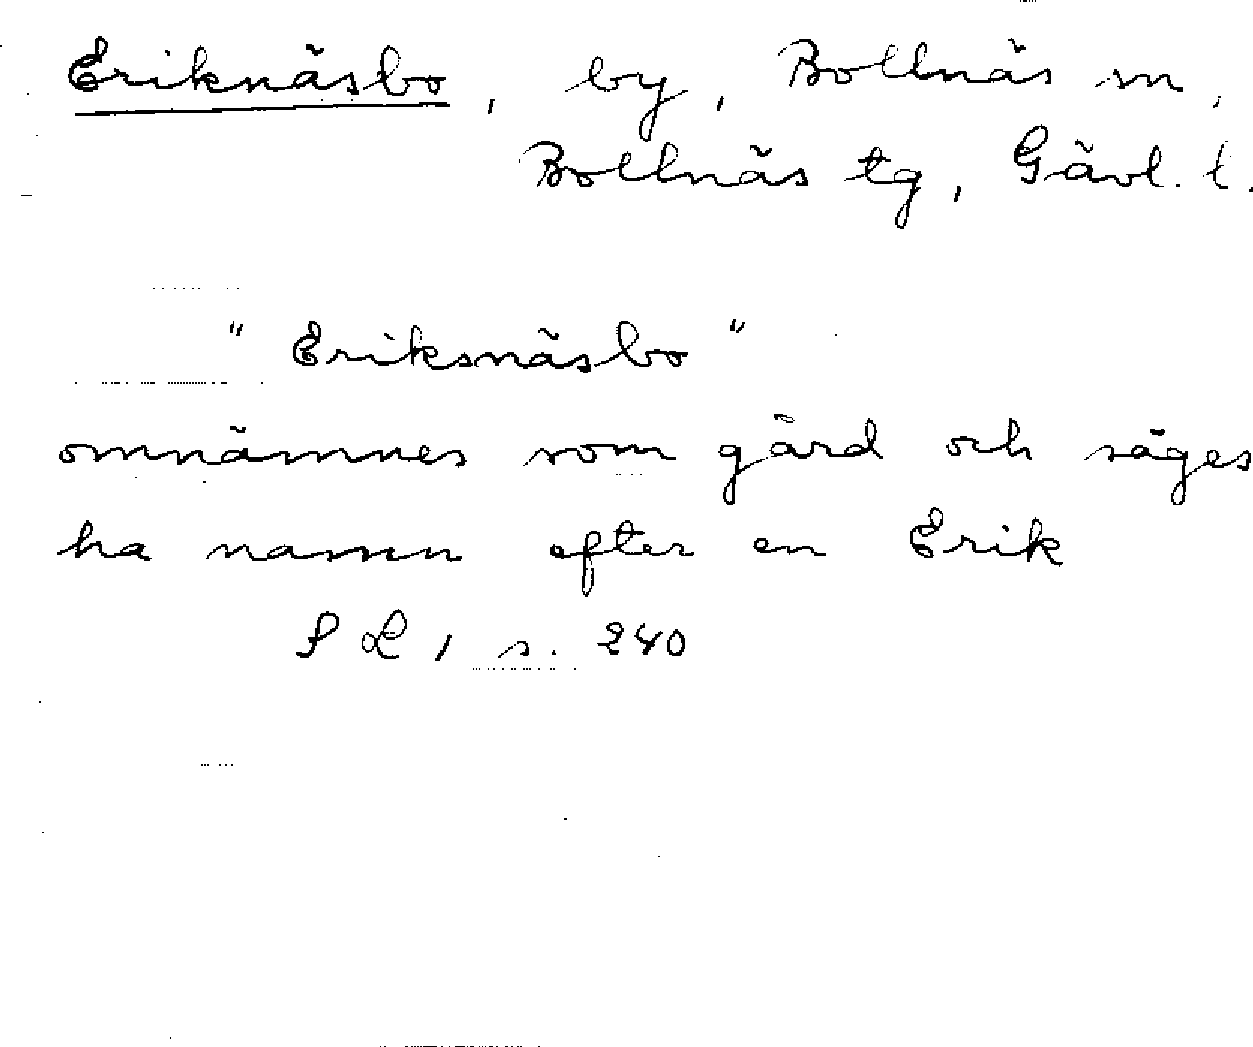 Eriknäsbo, by, Bollnäs sn,
Bollnäs tg, Gävl. l.
"Eriksnäsbo"
omnämnes som gård och säges
ha namn efter en Erik
SL, s. 240